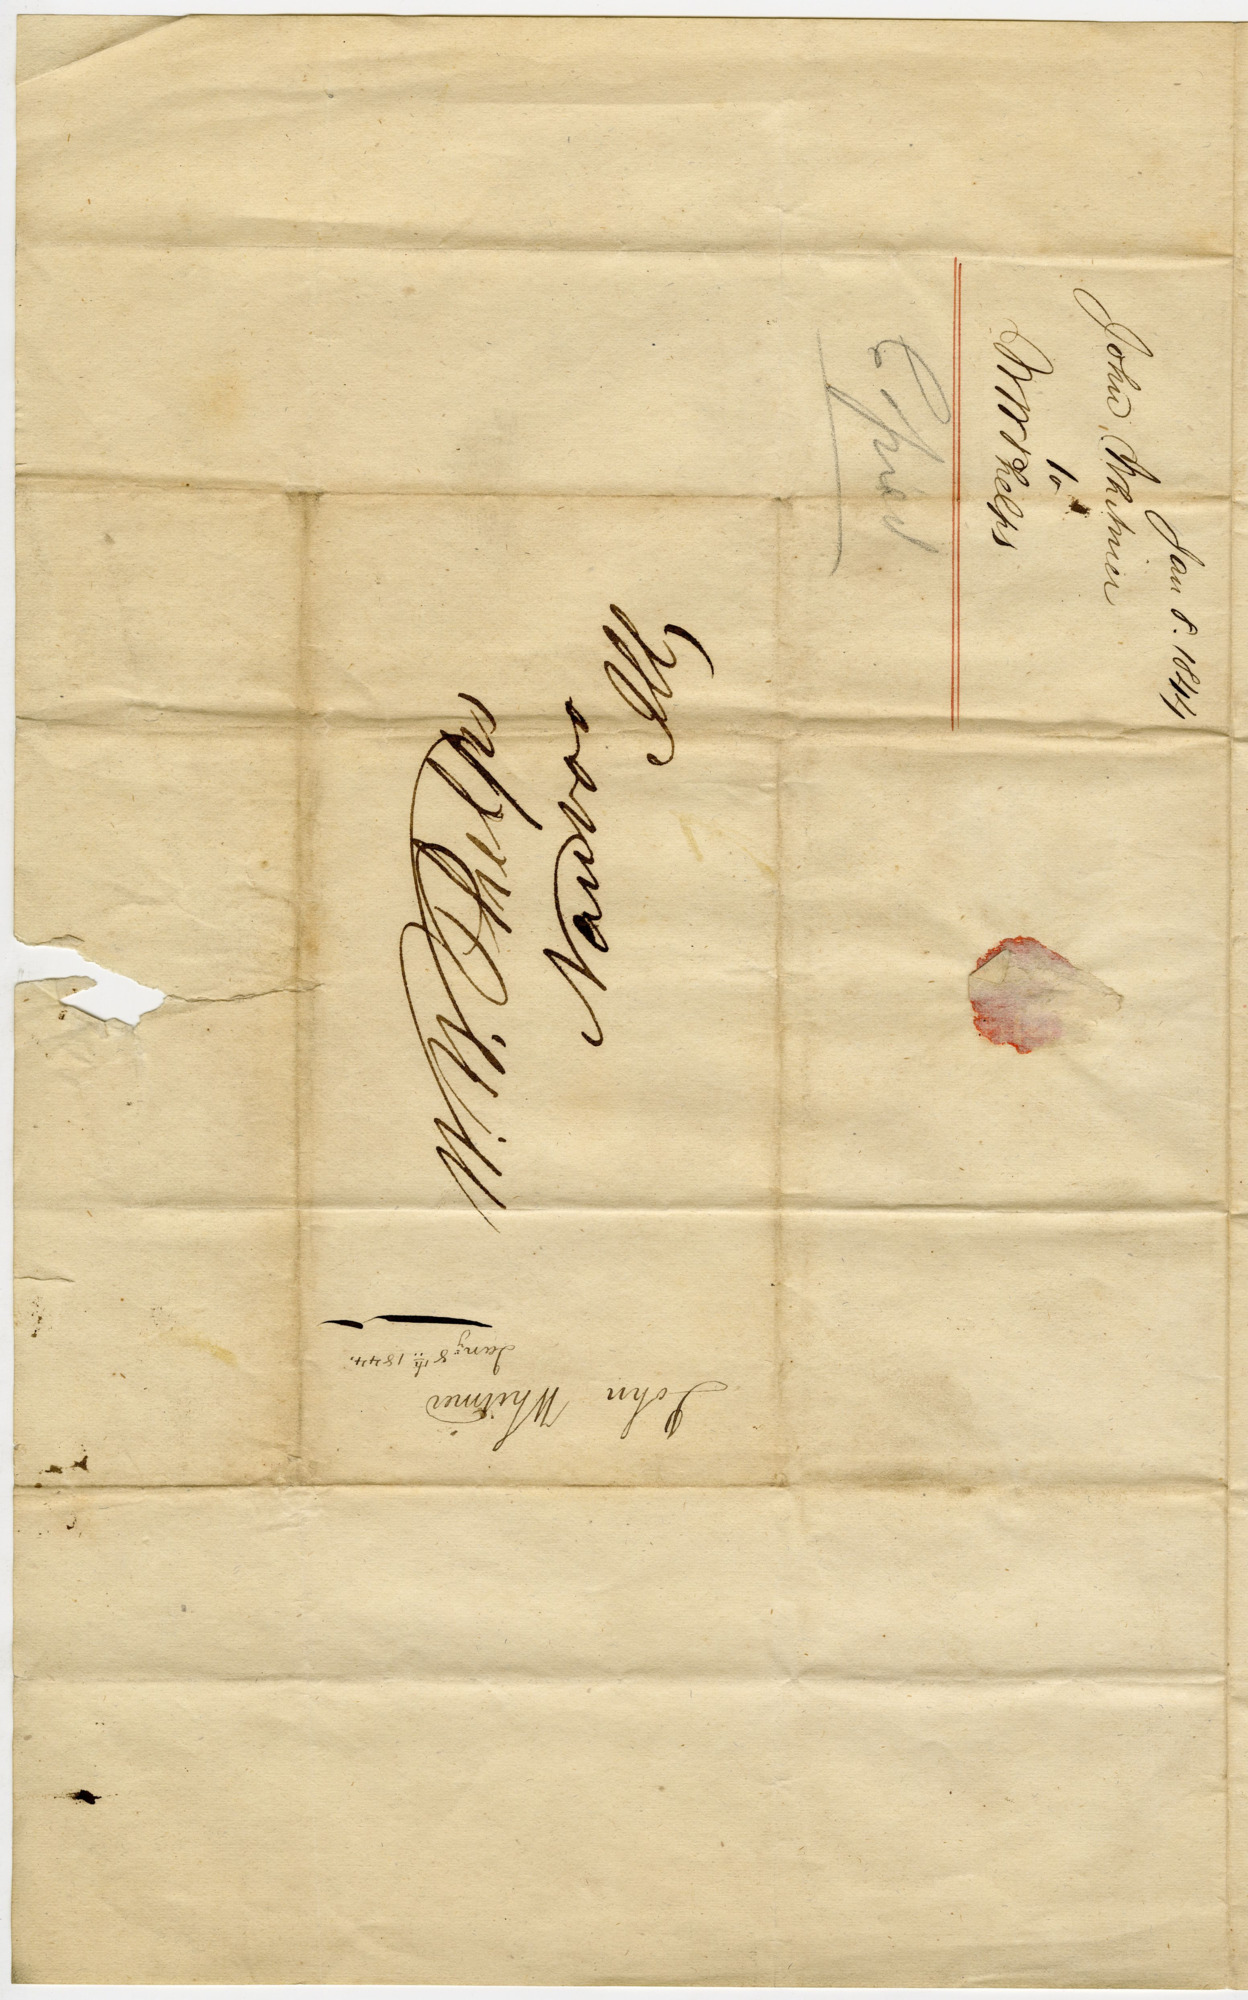 Jan 8. 1844
John Whitmer
to
W W Phelps
Copied
Phelps
Nauvoo
Ills
John Whitmer
Jany 8th 1844.